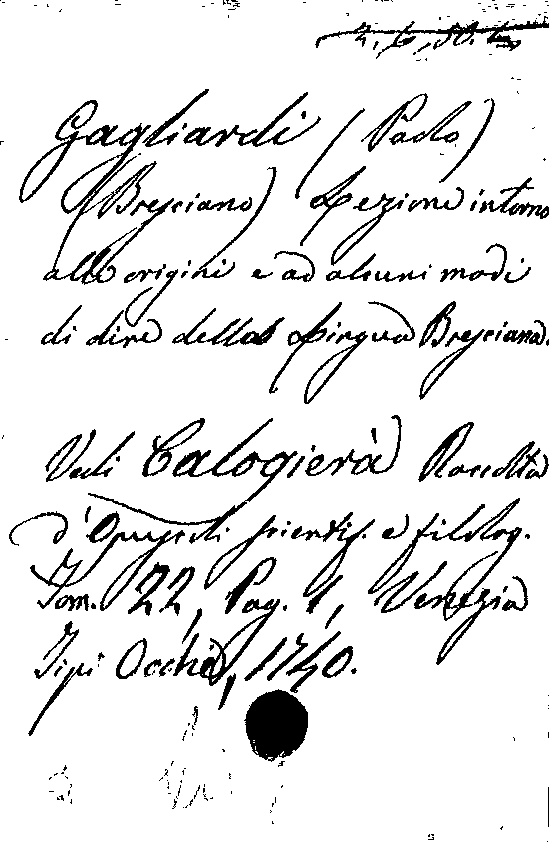 Gagliardi (Paolo)
(Bresciano) Lezione intorno
alle origini e ad alcuni modi
di dire della Lingua Bresciana.
Vedi Calogierà Raccolta
d'Opuscoli scientif. e filolog.
Tom. 22, Pag. 1, Venezia
Tipi Occhi, 1740.